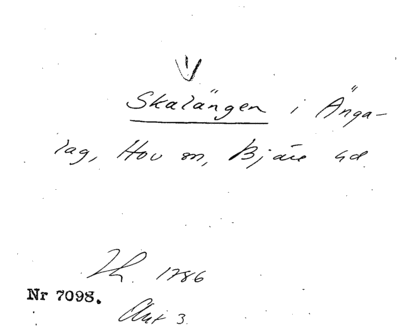 V
Skalängen i Änga-
lag, Hov sn, Bjäre hd
Lh. 1786
Nr 7098.
Akt 3.